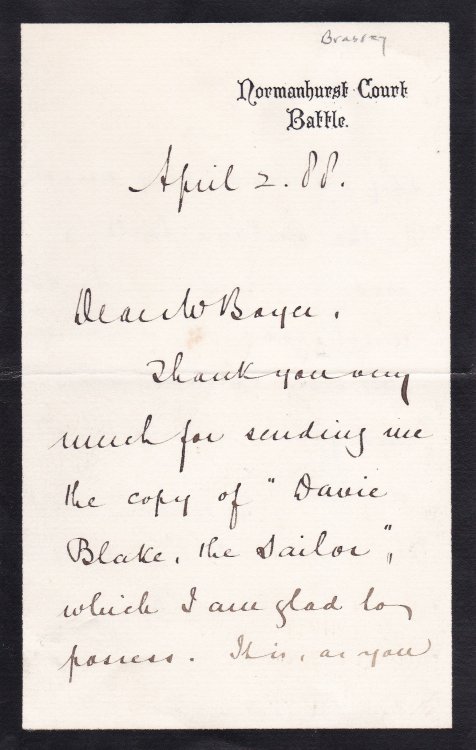 Brassey
Normanhurst Court
Battle.
April 2. 88.
Dear Mr Boyer,
Thank you very
much for sending me
the copy of "Davie
Blake, the Sailor",
which I am glad to
possess. It is, as you